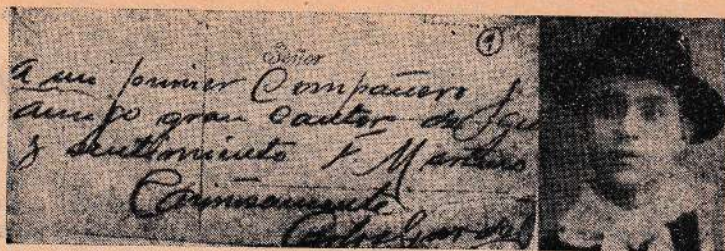 Señor
1
a mi primer Compañero y
amigo gran Cantor de
y sentimiento F. Martino
Cariñosamente
Carlos Gardel